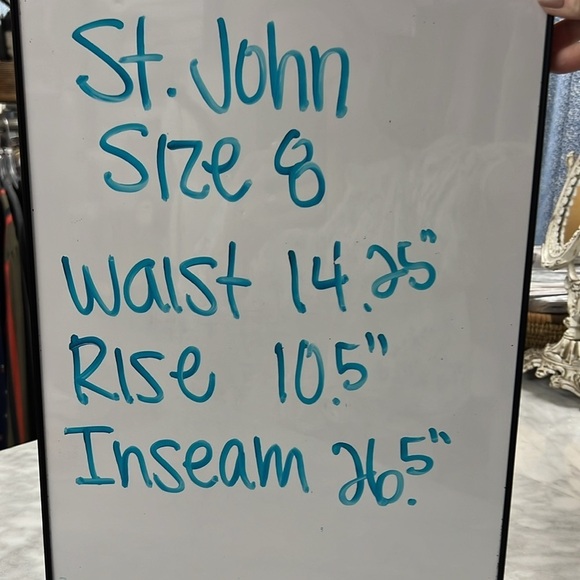 St. John
Size 8
Waist 14.25"
Rise 10.5"
Inseam 26.5"